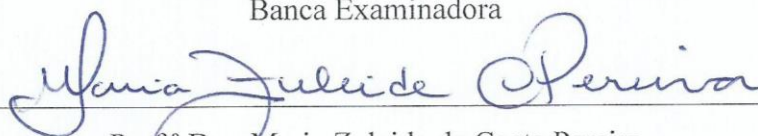 Banca Examinadora
Maria Zuleide C Pereira
Profª Dra. Maria Zuleide da Costa Pereira